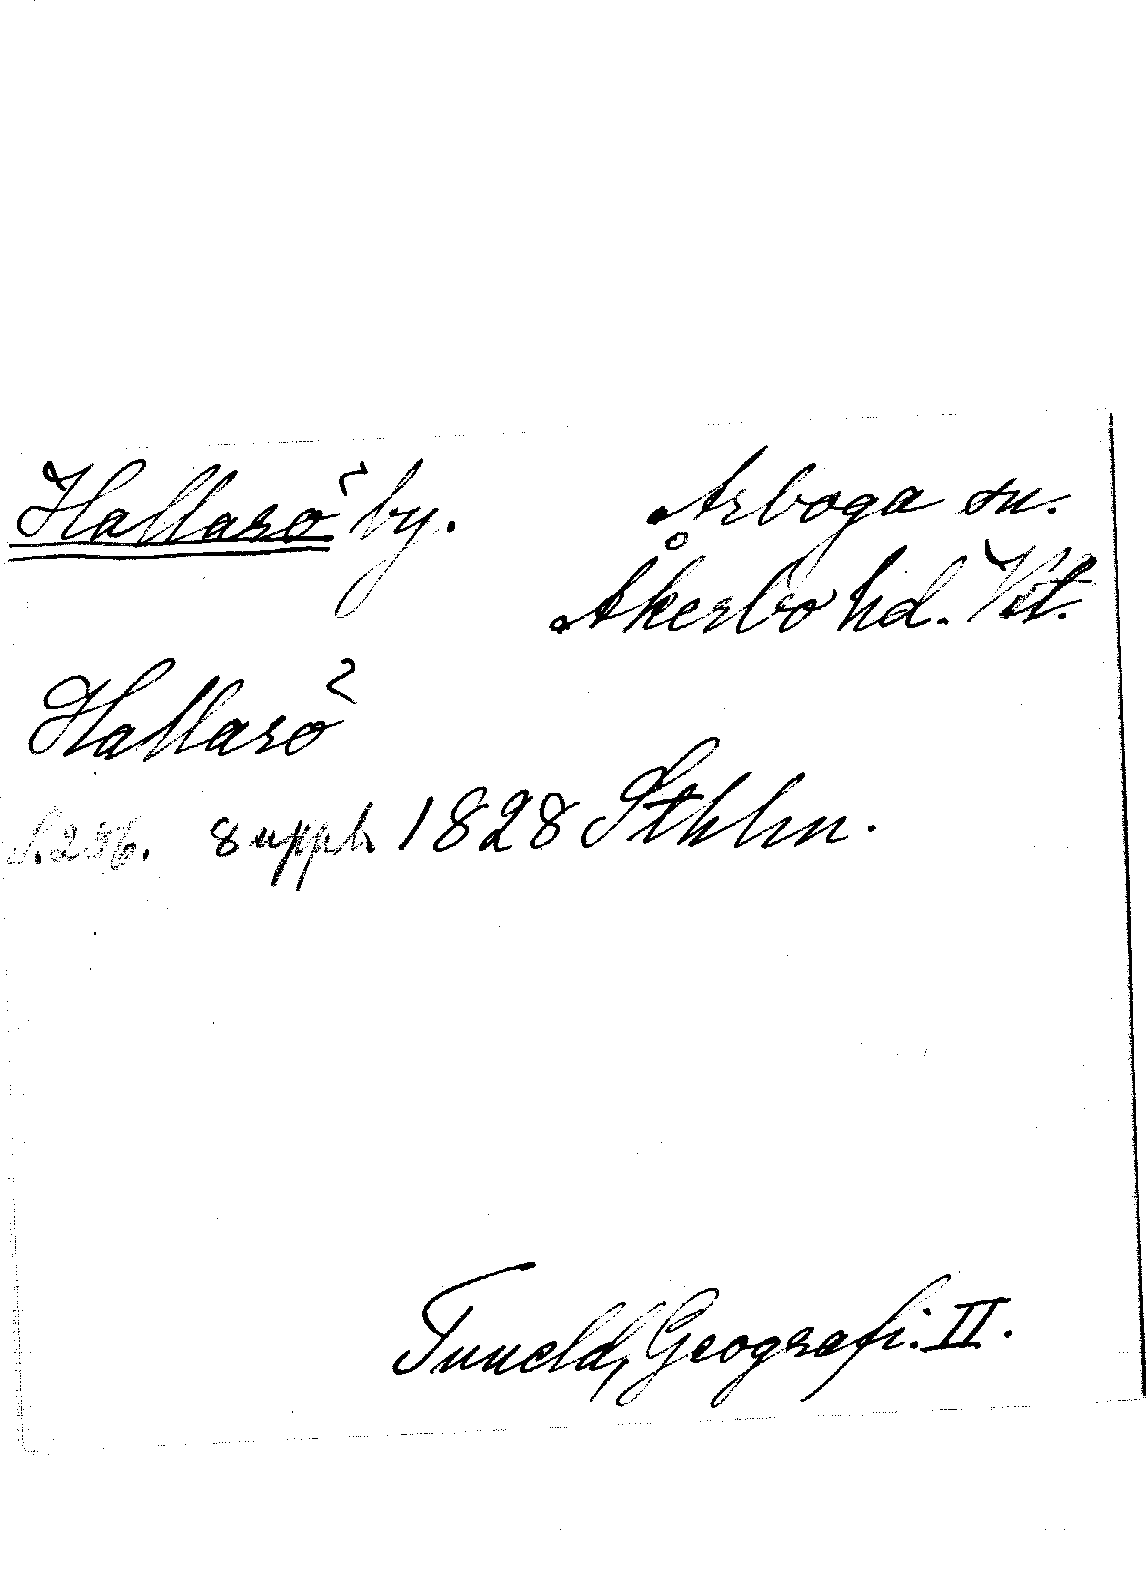 Hallarö by.
Arboga sn.
Åkerbo hd. Vstm.
Hallarö
S. 256. 8 uppl. 1828 Sthlm.
Tuneld, Geografi. II.